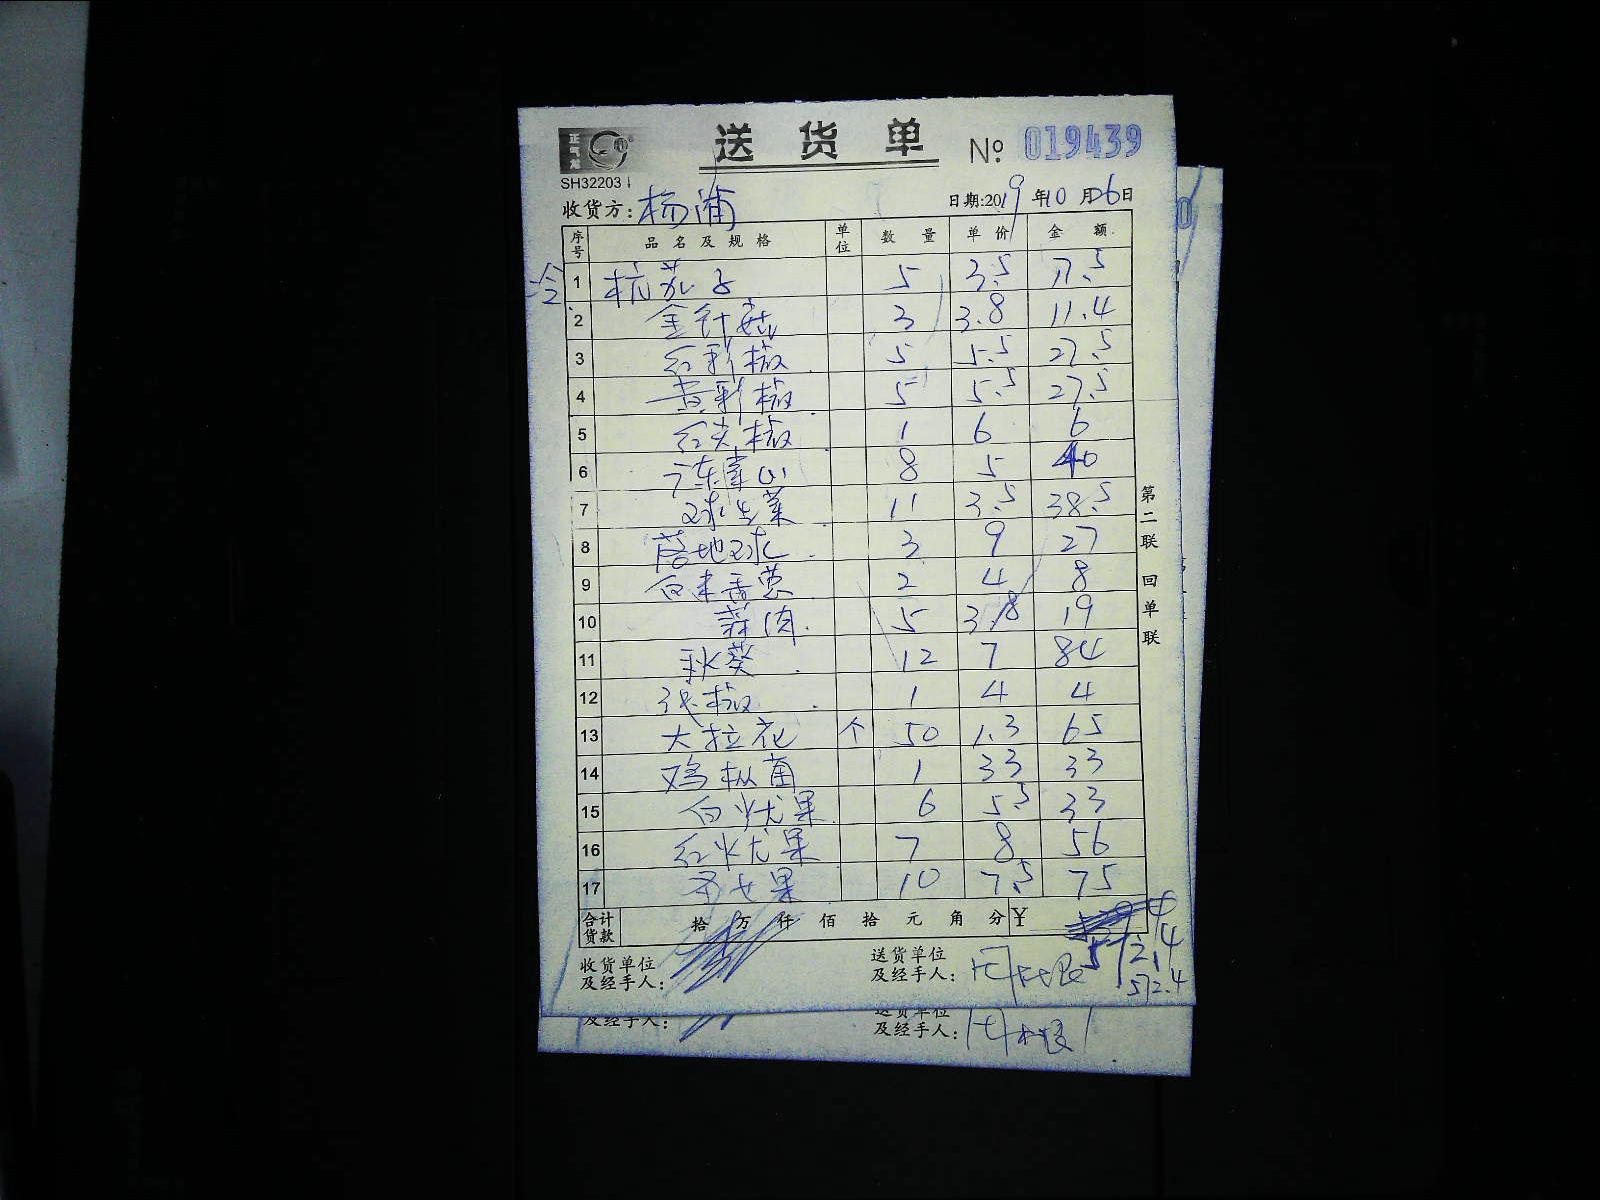 正气龙
送货单 № 019439
SH32203
收货方: 杨浦 日期:2019年10月26日
序号 品名及规格 单位 数量 单价 金额
冷 1 杭茄子 5 3.5 17.5
2 金针菇 3 3.8 11.4
3 红彩椒 5 5.5 27.5
4 黄彩椒 5 5.5 27.5
5 红尖椒 1 6 6
6 广东菜心 8 5 40
7 球生菜 11 3.5 38.5
8 落地球 3 9 27
9 白米香葱 2 4 8
10 蒜肉 5 3.8 19
11 秋葵 12 7 84
12 线椒 1 4 4
13 大拉花 个 50 1.3 65
14 鸡枞菌 1 33 33
15 白火龙果 6 5.5 33
16 红火龙果 7 8 56
17 圣女果 10 7.5 75
合计货款 拾 万 仟 佰 拾 元 角 分 ¥
572.4
572.4
收货单位及经手人: 送货单位及经手人:
第二联 回单联
及经手人: 送货单位及经手人: